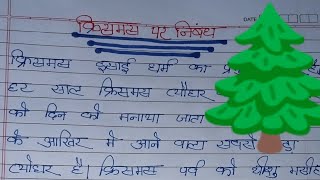 क्रिसमस पर निबंध
DATE
क्रिसमस इसाई धर्म का
हर साल क्रिसमस त्यौहार
को दिन को मनाया जाता
के आखिर मे आने वाला सबसे
त्योहार है। क्रिसमस पर्व को यीशु मसीह